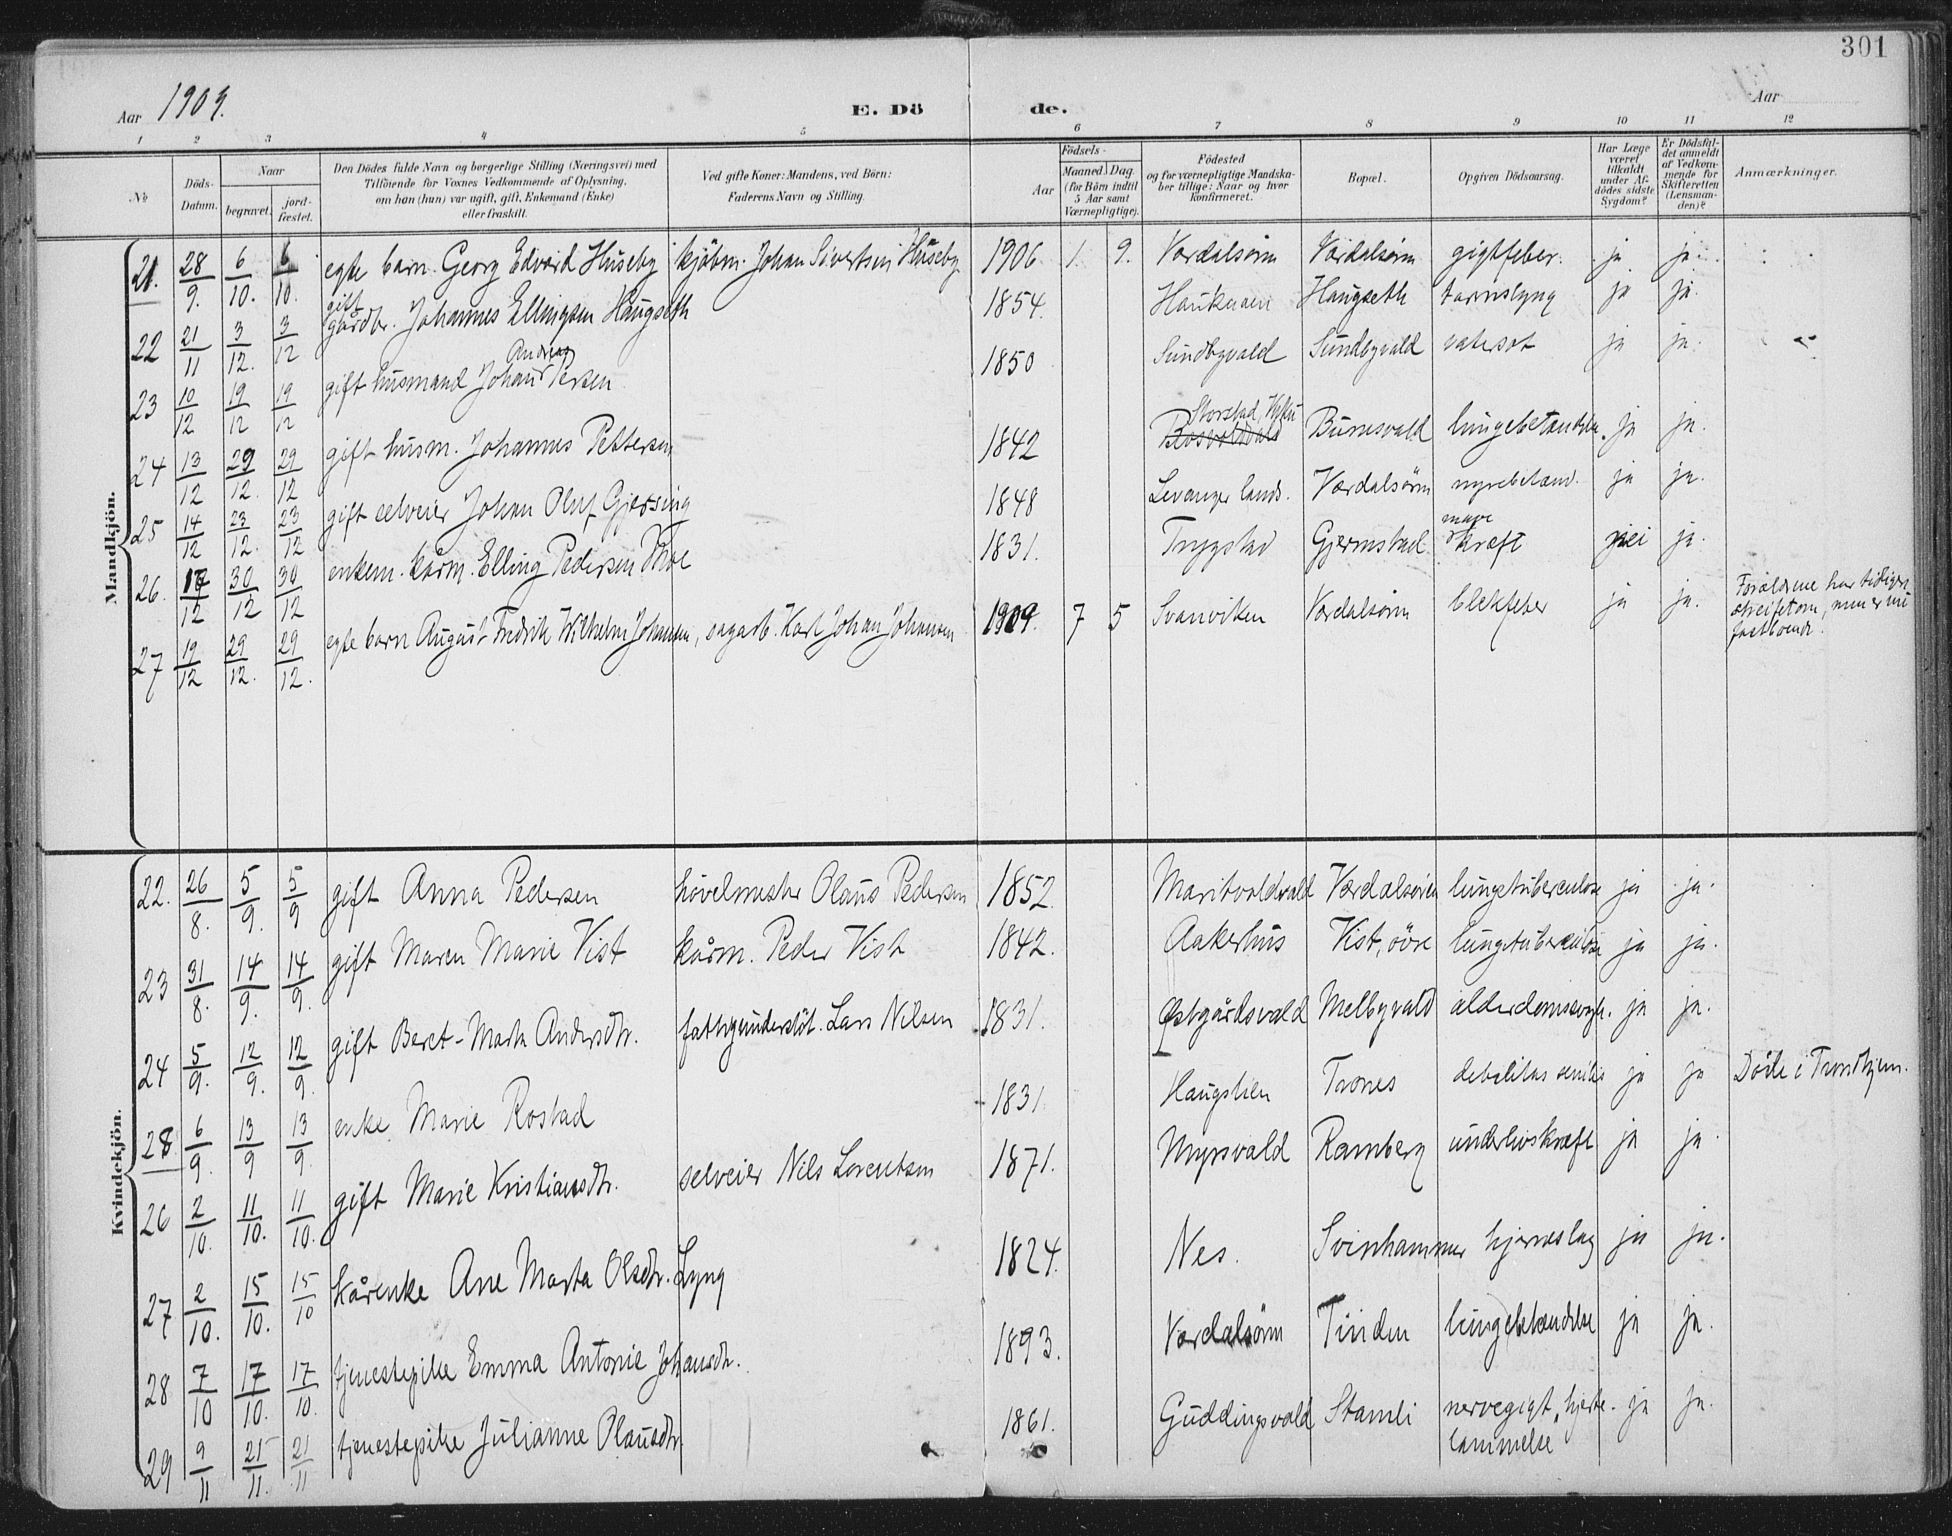 301
Aar 1909.
E. Döde.
Aar
1 2 3 4 5 6 7 8 9 10 11 12
No
Döds-Datum.
Naar
begravet.
jord-fæstet.
Den Dödes fulde Navn og borgerlige Stilling (Næringsvei) med
Tilföiende for Voxnes Vedkommende af Oplysning,
om han (hun) var ugift, gift, Enkemand (Enke)
eller fraskilt.
Ved gifte Koner: Mandens, ved Börn:
Faderens Navn og Stilling.
Födsels-
Aar
Maaned. Dag.
(for Börn indtil
5 Aar samt
Værnepligtige).
Födested
og for værnepligtige Mandska-
ber tillige: Naar og hvor
konfirmeret.
Bopæl.
Opgiven Dödsaarsag.
Har Læge
været
tilkaldt
under Af-
dödes sidste
Sygdom?
Er Dödsfal-
det anmeldt
af Vedkom-
mende for
Skifteretten
(Lensman-
den)?
Anmærkninger.
Mandkjön.
21. 28/9. 6/10. 6/10. egte barn Georg Edvard Huseby kjöbm. Johan Sivertsen Huseby 1906 1. 9. Verdalsören Verdalsören gigtfeber. ja ja.
22 21/11 3/12. 3/12 gift gårdbr. Johannes Ellingsen Haugseth 1854. Haukåen Haugseth tarmslyng ja ja.
23 10/12 19/12 19/12 gift husmand Johan Andreas Persen 1850 Sundbyvald Sundbyvald vatersot ja ja.
24 13/12 29/12. 29/12 gift husm. Johannes Pettersen 1842 Storstad, Ytterö Burmsvald lungebetændelse. ja ja.
25 14/12 23/12. 23/12 gift selveier Johan Oluf Gjersing 1848 Levanger lands. Verdalsören nyrebetænd. ja ja.
26. 17/12 30/12 30/12 enkem. kårm. Elling Pedersen Moe 1831. Trygstad Gjermstad mavekræft nei ja.
27 19/12 29/12. 29/12. egte barn August Fredrik Wilhelm Johansen, sagarb. Karl Johan Johansen 1909. 7 5 Svanviken Verdalsören blekfeber ja ja. Forældrene har tidligere
omstreifetom, men er nu
fastboende.
Kvindekjön.
22. 26/8. 5/9. 5/9 gift Anna Pedersen hövelmester Olaus Pedersen 1852. Maritvoldvald Verdalsören lungetuberculose ja ja.
23 31/8. 14/9. 14/9. gift Maren Marie Vist kårm. Peder Vist 1842. Aakerhus Vist, övre lungetuberculose ja ja.
24 5/9. 12/9. 12/9. gift Beret-Marta Andersdtr. fattigunderstöt. Lars Nilsen 1831. Østgårdsvald Melbyvald alderdomssvagh. ja ja.
25 6/9. 13/9 13/9. enke Marie Rostad 1831. Haugslien Trones debilitas senilis ja ja Döde i Trondhjem.
26 2/10. 11/10. 11/10. gift Marie Kristiansdtr. selveier Nils Lorentsen 1871. Myrsvald Ramberg underlivskræft ja ja.
27 2/10. 15/10. 15/10 kårenke Ane Marta Olsdtr. Lyng 1824. Nes. Svinhammer hjerneslag ja ja.
28 7/10 17/10. 17/10. tjenestepike Emma Antonie Johansdtr. 1893. Verdalsören Tinden lungebetændelse ja ja.
29 9/11 21/11. 21/11 tjenestepike Julianne Olausdtr. 1861. Guddingsvald Stamli nervegigt, hjerte-
lammelse ja ja.